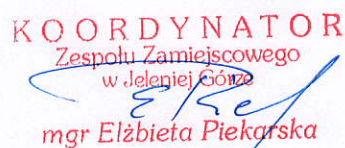 KOORDYNATOR
Zespołu Zamiejscowego
w Jeleniej Górze
mgr Elżbieta Piekarska